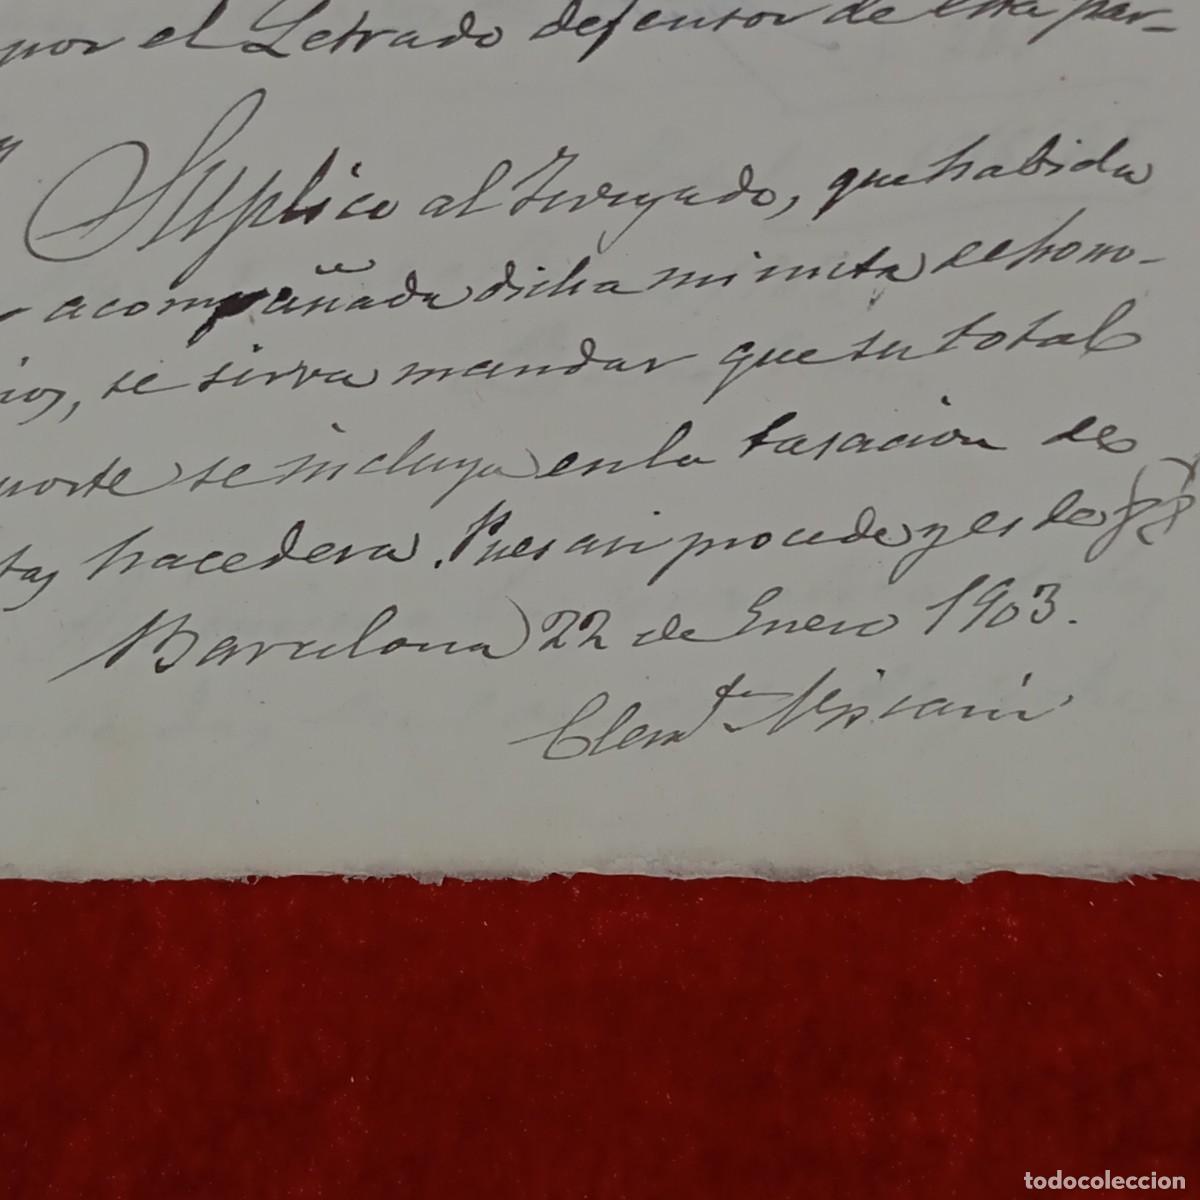 por el Letrado defensor de esta par-
Suplico al Juzgado, que habida
acompañada dicha minuta de hono-
ios, se sirva mandar que su total
porte se incluya en la tasacion de
tas hacedera. Pues asi procede y es de
Barcelona 22 de Enero 1903.
Clem.te
todocoleccion